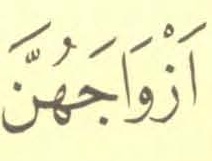 اَزْوَاجَهُنَّ